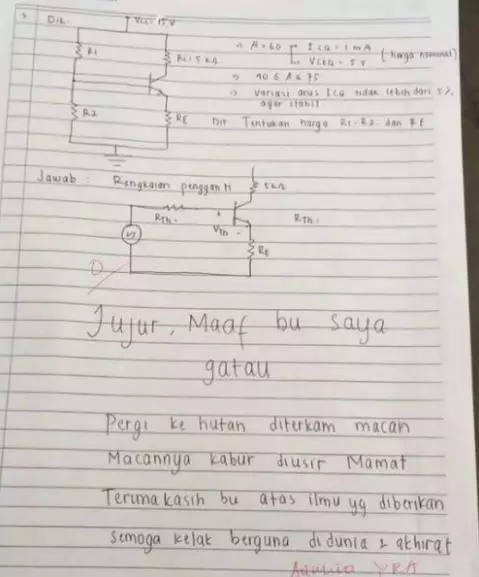 3 Dik. Vcc = 15 V
R1
Rc: 5 kΩ
R2
RE
Icq = 1 mA
VCEQ = 5 V
(harga nominal)
variasi arus Icq tidak lebih dari 5%
agar stabil
Dit Tentukan harga R1. R2. dan RE
Jawab : Rangkaian pengganti
5 kΩ
RTh.
VTh.
RE
RTh.
0
Jujur, Maaf bu saya
gatau
Pergi ke hutan diterkam macan
Macannya kabur diusir Mamat
Terima kasih bu atas ilmu yg diberikan
semoga kelak berguna di dunia & akhirat